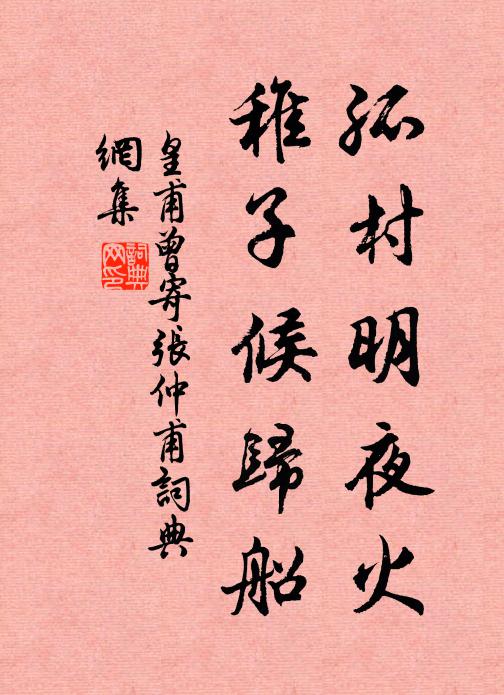 孤村明夜火
稚子候歸船
皇甫曾寄張仲甫詞典
網集
詞典
网印